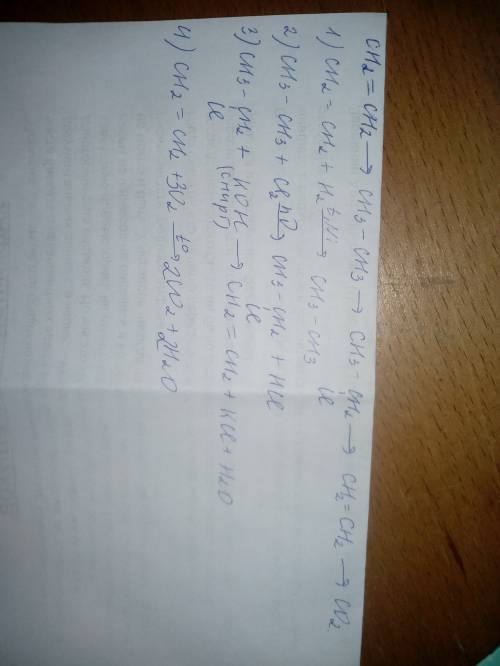 CH2=CH2 → CH3-CH3 → CH3-CH2 → CH2=CH2 → CO2
Cl
1) CH2=CH2 + H2 t,Ni→ CH3-CH3
2) CH3-CH3 + Cl2 hν→ CH3-CH2 + HCl
Cl
3) CH3-CH2 + KOH → CH2=CH2 + KCl + H2O
Cl (спирт)
4) CH2=CH2 + 3O2 t°→ 2CO2 + 2H2O